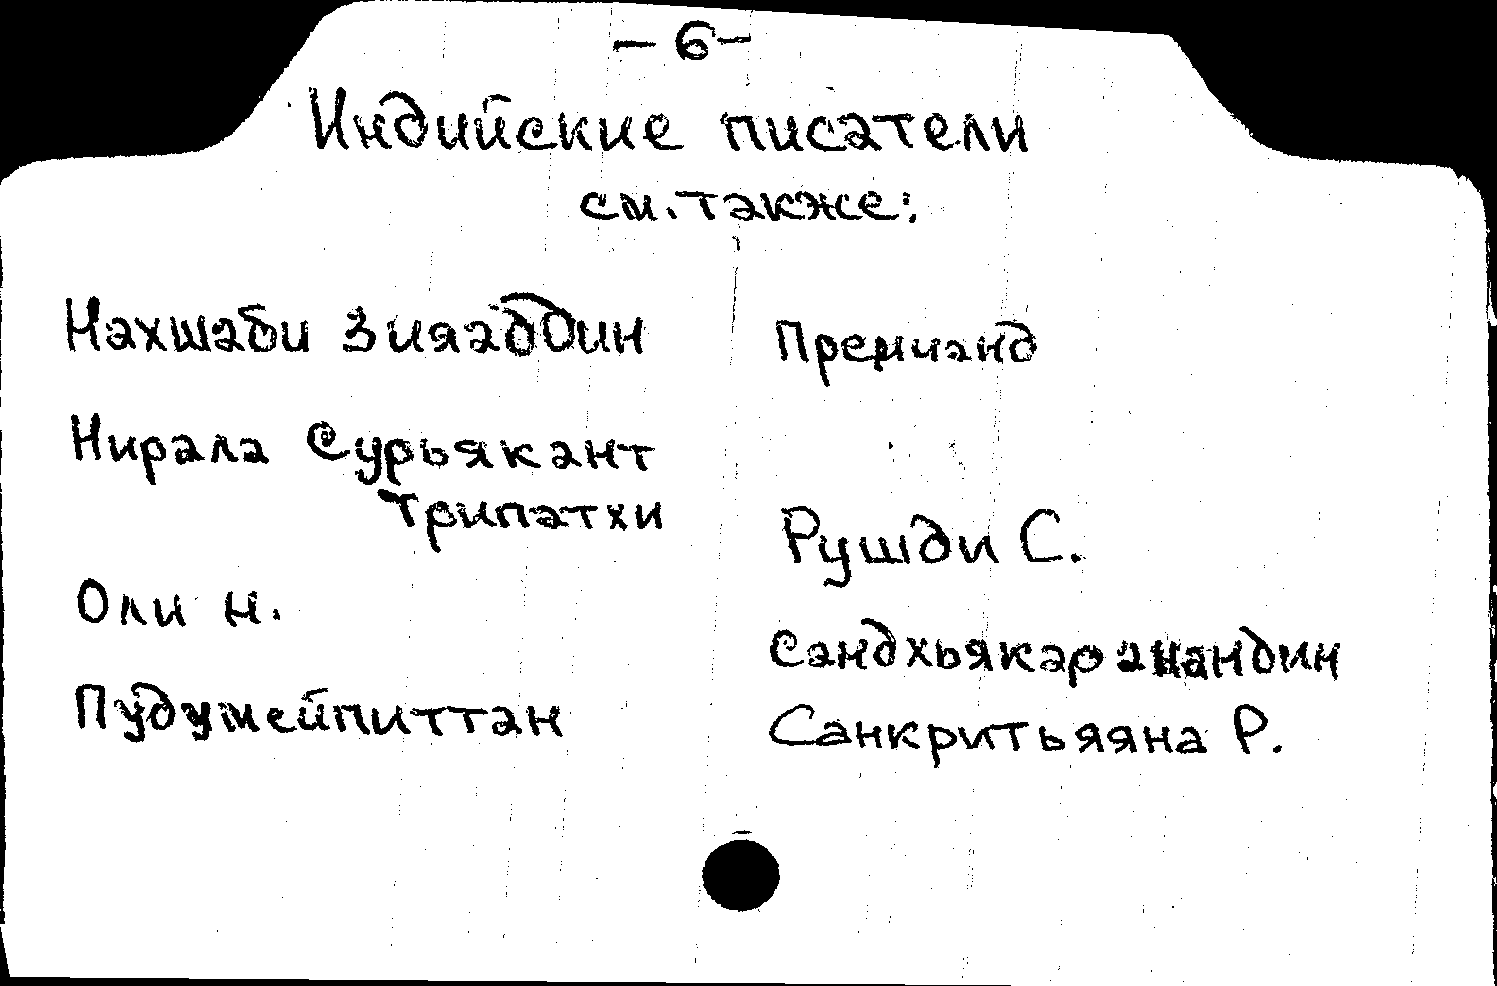 – 6 –
Индийские писатели
см. также:
Нахшаби Зияаддин
Нирала Сурьякант
Трипатхи
Оли Н.
Пудумейпиттан
Премчанд
Рушди С.
Сандхьякар анандин
Санкритьяяна Р.